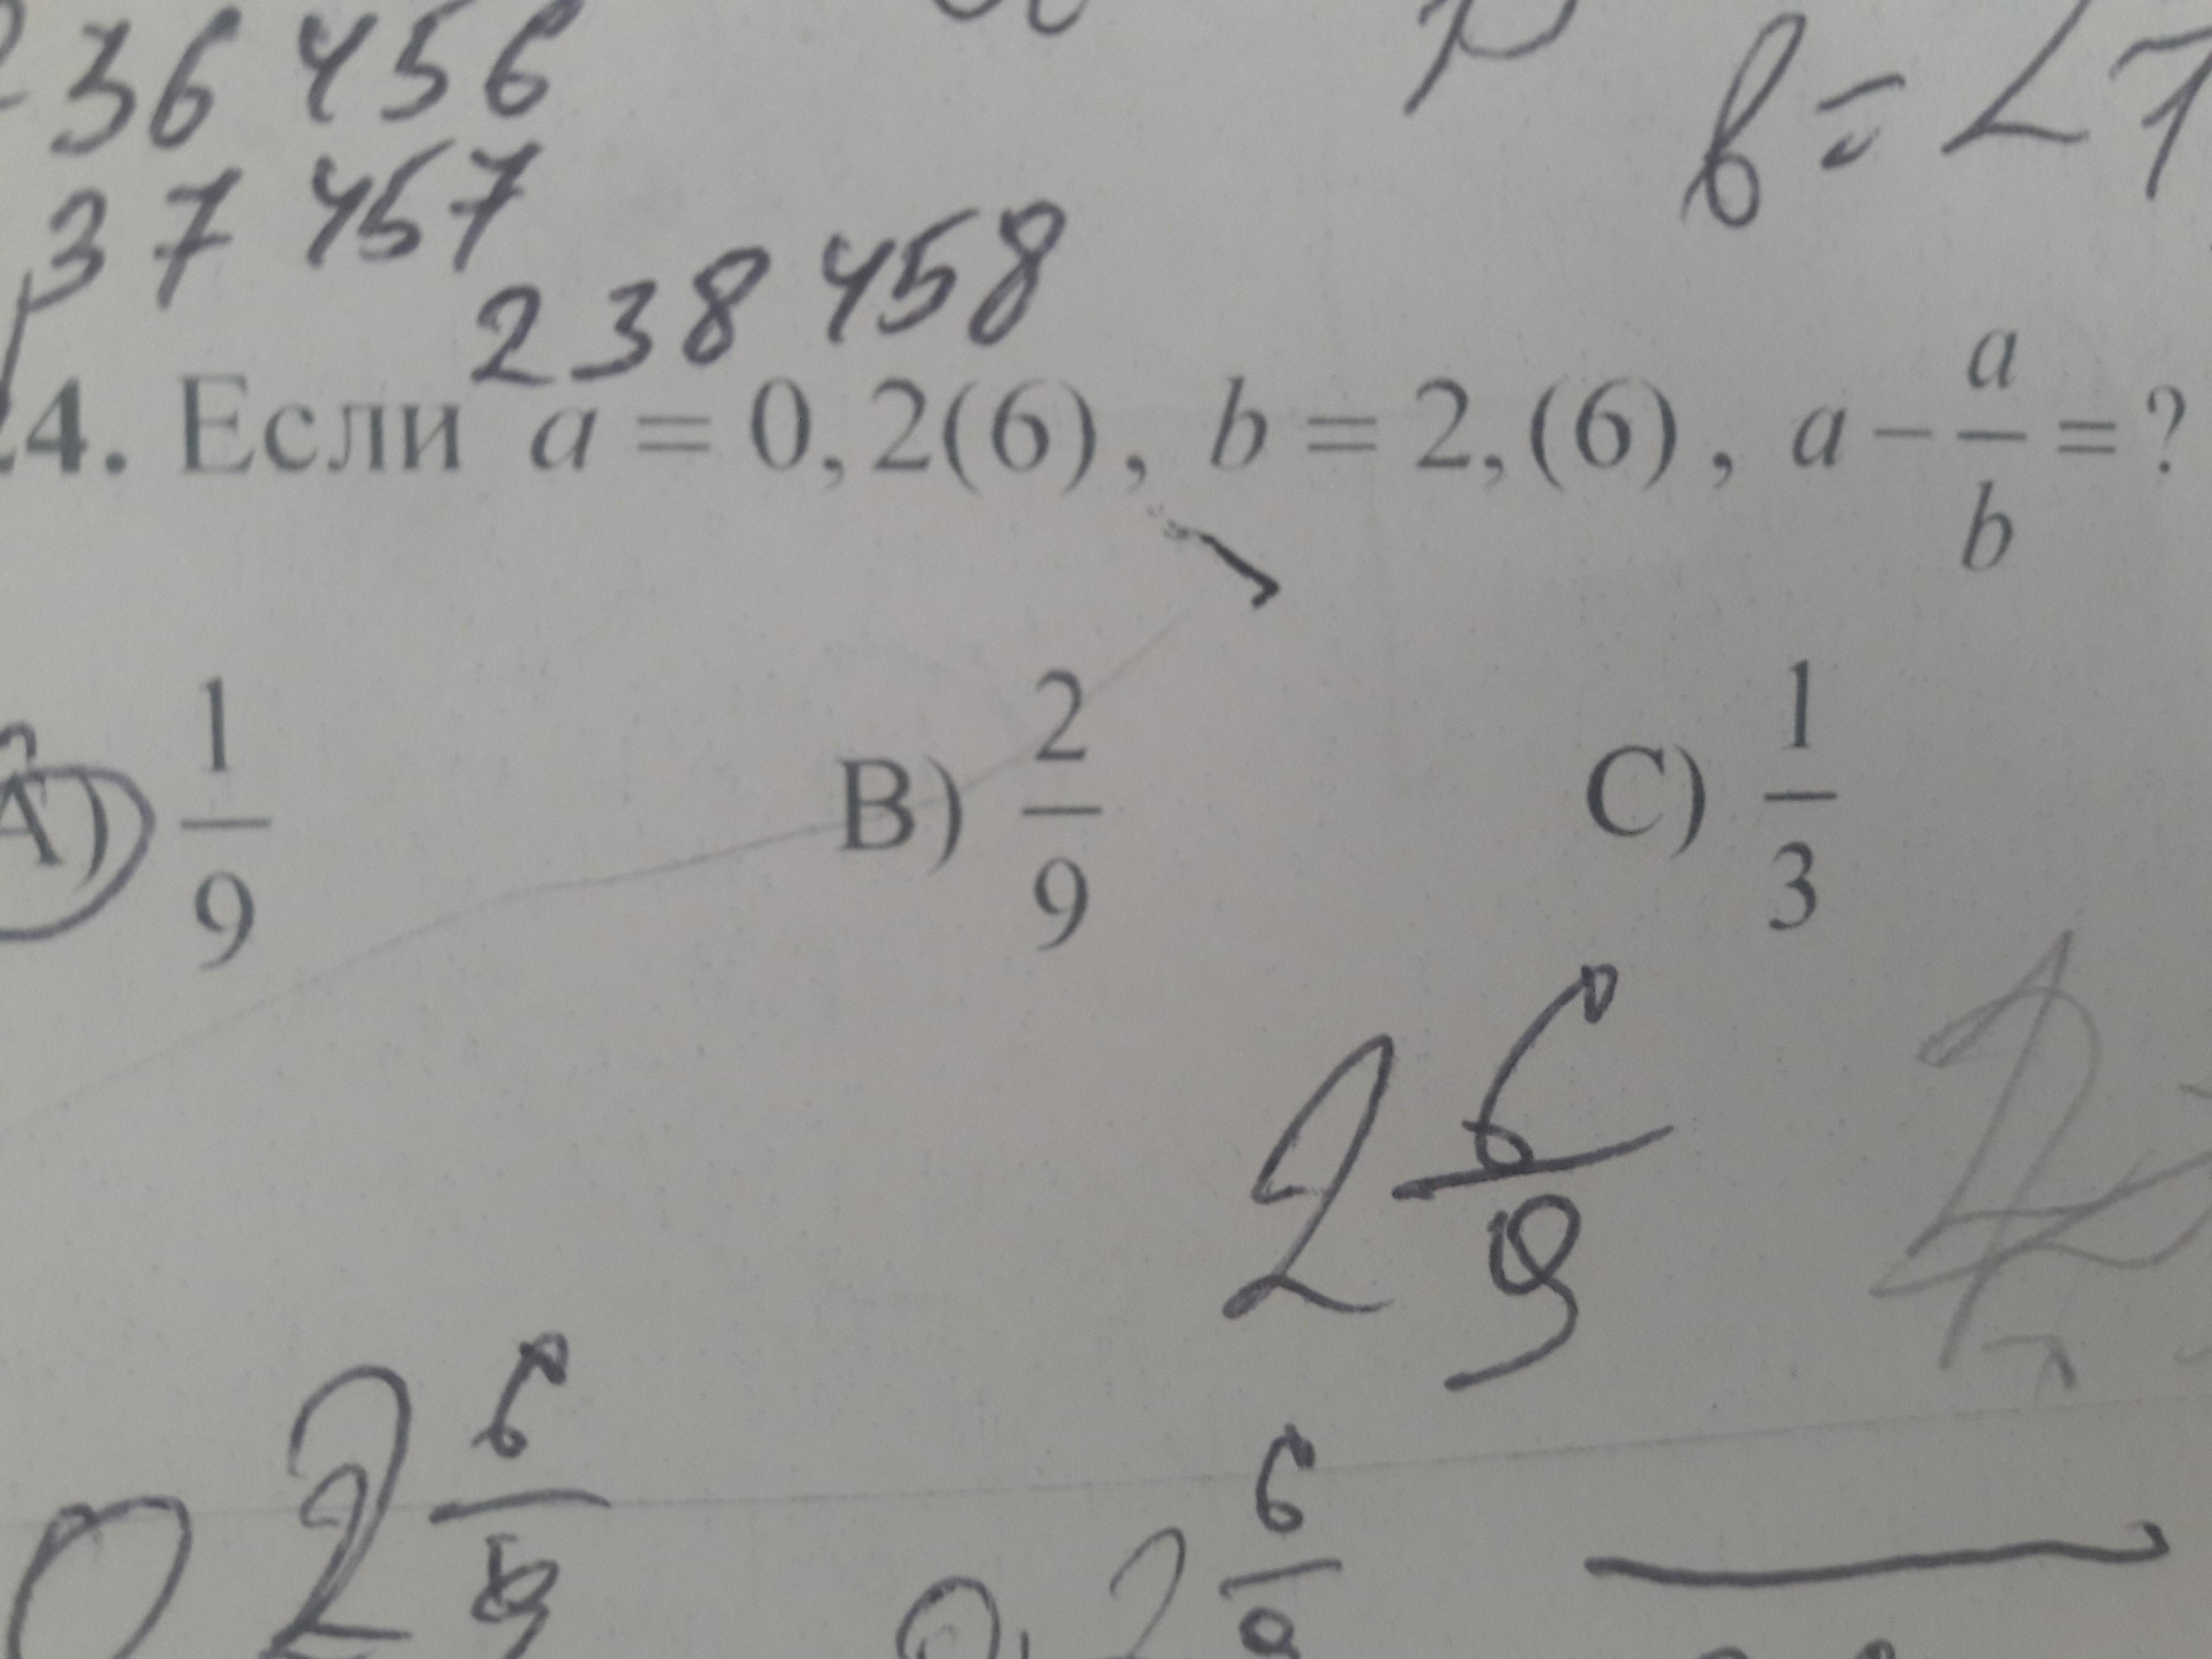 36 456
37 457
b =
238 458
4. Если a = 0,2(6), b = 2,(6), a − a/b = ?
A) 1/9 B) 2/9 C) 1/3
2 6/9
0 2 6/9 0,2 6/9